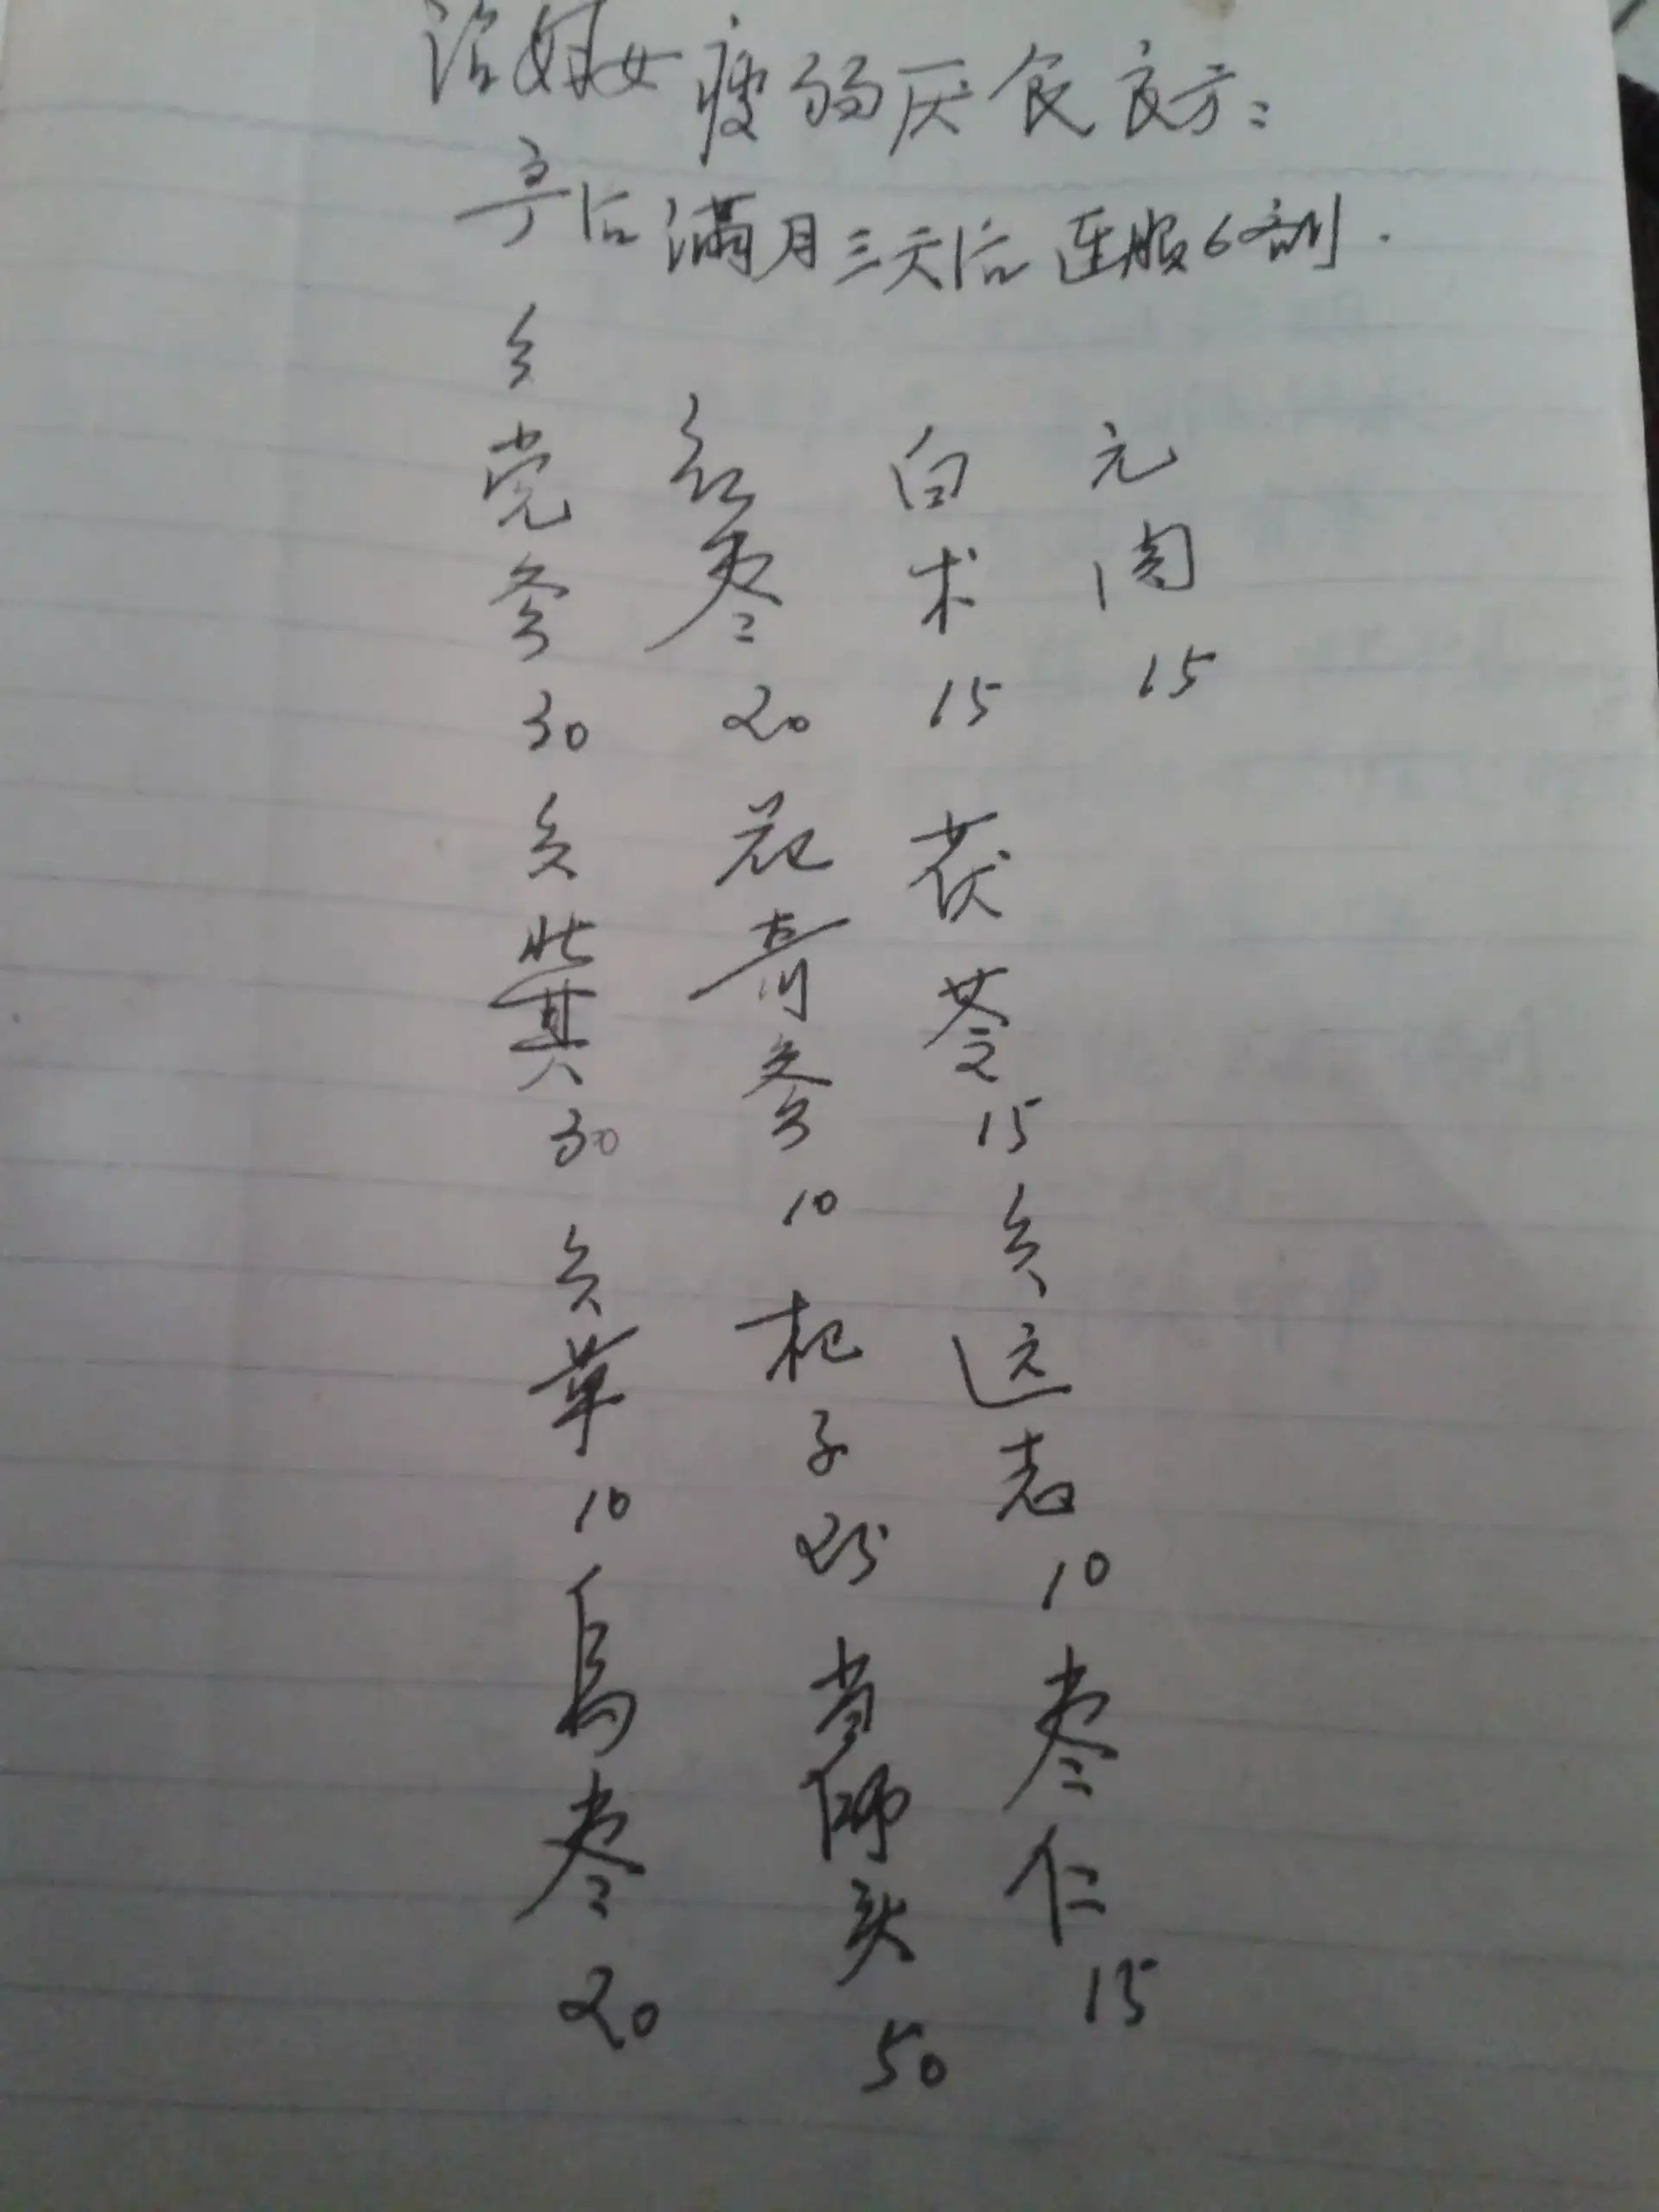 治妇女瘦弱厌食良方:
产后满月三天后连服6剂.
党参30 炙芪30 炙草10 乌枣20
红枣20 花旗参10 杞子25 当归头50
白术15 茯苓15 炙远志10 枣仁15
元肉15